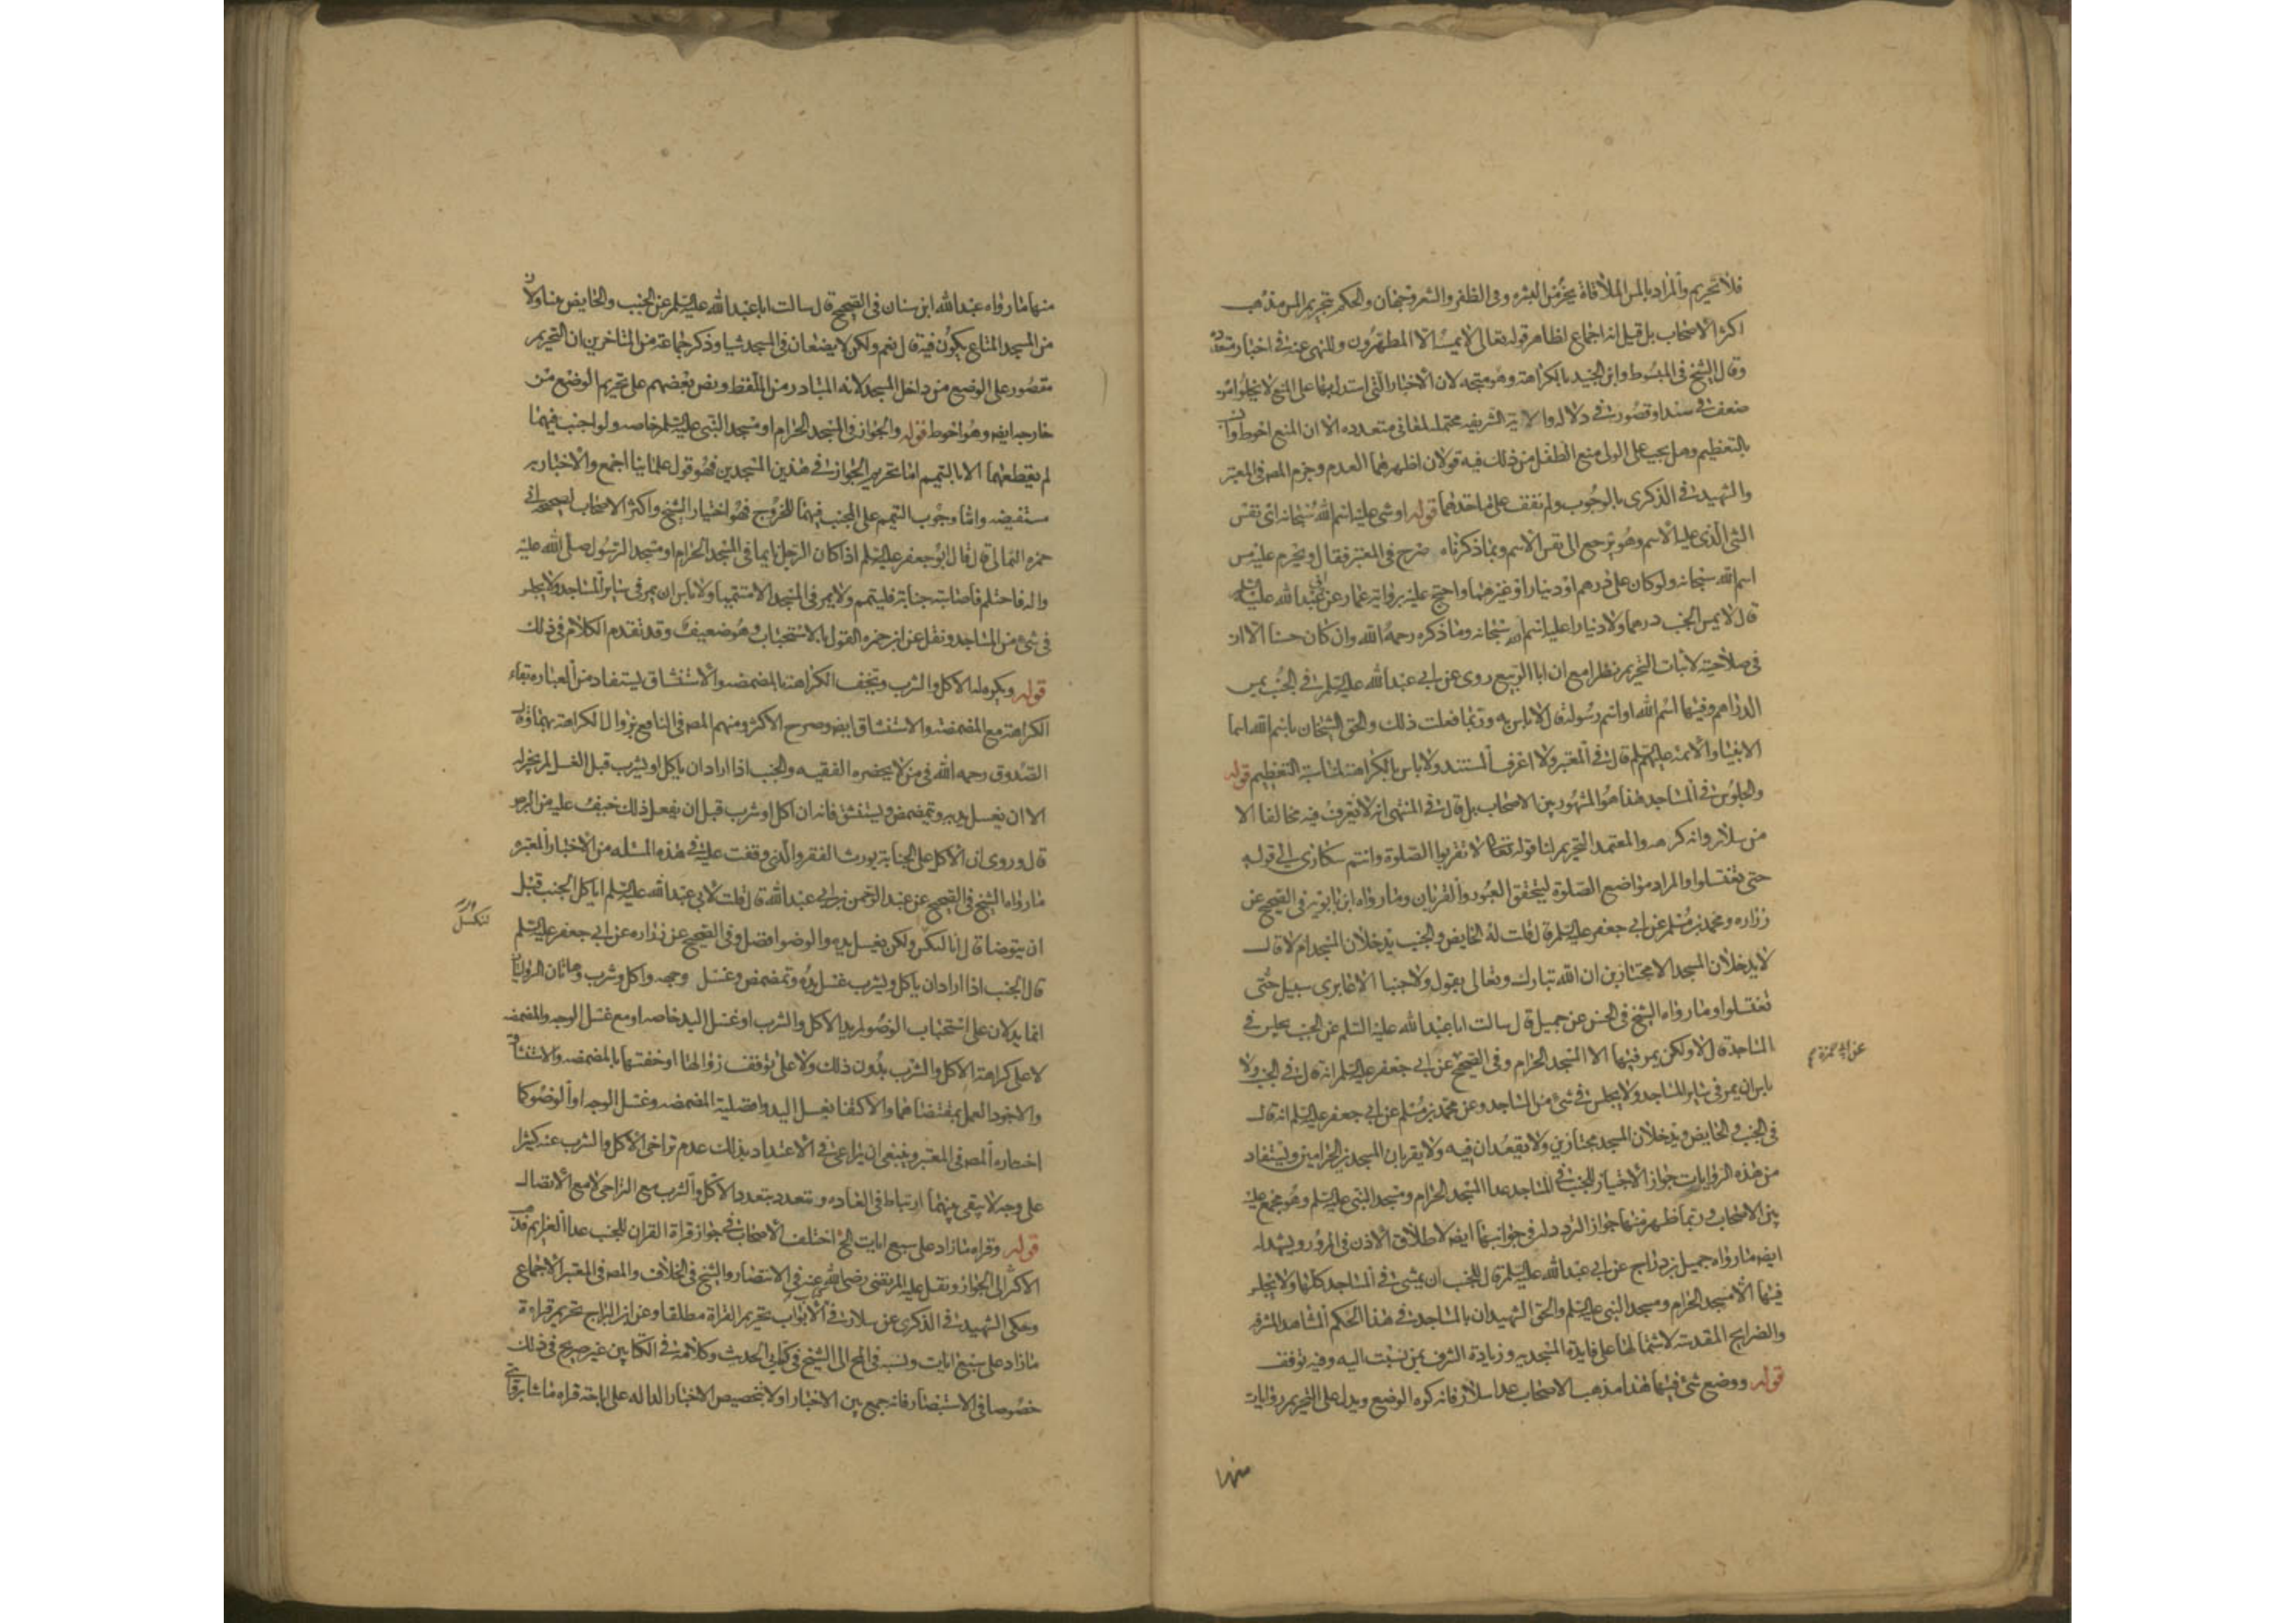 فلا تحريم والمراد بالمس الملاقاة بجزء من البشره وفى الظفر والشعر وجهان والحكم بتحريم المس مذهب
اكثر الاصحاب بل قيل انه اجماع لظاهر قوله تعالى لا يمسه الا المطهرون وللنهى عنه فى اخبار متعدده
وقال الشيخ فى المبسوط وابن الجنيد بالكراهة وهو متجه لان الاخبار التى استدل بها على المنع لا يخلوا من
ضعف فى سند او قصور فى دلاله والاية الشريفه محتملة لمعانى متعدده الا ان المنع احوط وانسب
بالتعظيم وهل يجب على الولى منع الطفل من ذلك فيه قولان اظهرهما العدم وجزم المص فى المعتبر
والشهيد فى الذكرى بالوجوب ولم نقف على ماخذهما قوله او شى عليه اسم الله سبحانه اى نقس
الشى الذى عليه الاسم وهو يرجع الى نقس الاسم وبما ذكرناه صرح فى المعتبر فقال ويحرم عليه مس
اسم الله سبحانه ولو كان على درهم او دينار او غيرهما واحتج عليه برواية عمار عن ابى عبد الله عليه السلم
قال لا يمس الجنب درهما ولا دنيارا عليه اسم الله سبحانه وما ذكره رحمه الله وان كان حسنا الا ان
فى صلاحيته لاثبات التحريم نظرا مع ان ابا الربيع روى عن ابى عبد الله عليه السلم فى الجنب يمس
الدراهم وفيها اسم الله او اسم رسوله قال لا باس به وربما فعلت ذلك والحق الشيخان باسم الله اسما
الانبياء والائمه عليهم السلم قال فى المعتبر ولا اعرف المستند ولا باس بالكراهة لمناسبة التعظيم قوله
والجلوس فى المساجد هذا هو المشهور بين الاصحاب بل قال فى المنتهى انه لا نعرف فيه مخالفا الا
من سلار وانه كرهه والمعتمد التحريم لنا قوله تعالى لا تقربوا الصلوة وانتم سكارى الى قوله
حتى تغتسلوا والمراد مواضع الصلوة ليتحقق العبور والقربان وما رواه ابن بابويه فى الصحيح عن
زراره ومحمد بن مسلم عن ابى جعفر عليه السلم قال قلت له الحايض والجنب يدخلان المسجد ام لا قال
لا يدخلان المسجد الا مجتازين ان الله تبارك وتعالى يقول ولا جنبا الا عابرى سبيل حتى
تغتسلوا وما رواه الشيخ فى الحسن عن جميل قال سالت ابا عبد الله عليه السلم عن الجنب يجلس فى
المساجد قال لا ولكن يمر فيها الا المسجد الحرام وفى الصحيح عن ابى جعفر عليه السلم انه قال فى الجنب ولا
عن ابى حمزة
باس ان يمر فى ساير المساجد ولا يجلس فى شىء من المساجد وعن محمد بن مسلم عن ابى جعفر عليه السلم انه قال
فى الجنب والحايض ويدخلان المسجد مجتازين ولا يقعدان فيه ولا يقربان المسجدين الحرامين ويستفاد
من هذه الروايات جواز الاجتياز للجنب فى المساجد عدا المسجد الحرام ومسجد النبى عليه السلم وهو مجمع عليه
بين الاصحاب وربما ظهر منها جواز التردد له فى جوانبها ايضه لاطلاق الاذن فى المرور ويشهد له
ايضه ما رواه جميل بن دراج عن ابى عبد الله عليه السلم قال للجنب ان يمشى فى المساجد كلها ولا يجلس
فيها الا مسجد الحرام ومسجد النبى عليه السلم والحق الشهيدان بالمساجد فى هذا الحكم المشاهد المشرفه
والضرايح المقدسة لاشتمالها على فايدة المسجديه وزيادة الشرف بمن نسبت اليه وفيه توقف
قوله ووضع شى فيها هذا مذهب الاصحاب عدا سلار فانه كره الوضع ويدل على التحريم روايات
منها
منها ما رواه عبد الله ابن سنان فى الصحيح قال سالت ابا عبد الله عليه السلم عن الجنب والحايض يتناولان
من المسجد المتاع يكون فيه قال نعم ولكن لا يضعان فى المسجد شيا وذكر جماعة من المتاخرين ان التحريم
مقصور على الوضع من داخل المسجد لانه المتبادر من اللفظ ونص بعضهم على تحريم الوضع من
خارجه ايضه وهو احوط قوله والجواز فى المسجد الحرام او مسجد النبى عليه السلم خاصه ولو اجنب فيهما
لم يقطعهما الا بالتيمم اما تحريم الجواز فى هذين المسجدين فهو قول علماينا اجمع والاخبار به
مستفيضه واما وجوب التيمم على المجنب فيهما للخروج فهو اختيار الشيخ واكثر الاصحاب لصحيحة ابى
حمزه الثمالى قال قال ابو جعفر عليه السلم اذا كان الرجل نايما فى المسجد الحرام او مسجد الرسول صلى الله عليه
واله فاحتلم فاصابته جنابة فليتيمم ولا يمر فى المسجد الا متيمما ولا باس ان يمر فى ساير المساجد ولا يجلس
فى شىء من المساجد ونقل عن ابن حمزه القول بالاستحباب وهو ضعيف وقد تقدم الكلام فى ذلك
قوله ويكره له الاكل والشرب وتخف الكراهة بالمضمضه والاستنشاق يستفاد من العباره بقاء
الكراهة مع المضمضه والاستنشاق ايضه وصرح الاكثر ومنهم المص فى النافع بزوال الكراهة بهما وقال
الصدوق رحمه الله فى من لا يحضره الفقيه والجنب اذا اراد ان ياكل او يشرب قبل الغسل لم يجز له
الا ان يغسل يديه ويتمضمض ويستنشق فانه ان اكل او شرب قبل ان يفعل ذلك خيف عليه من البرص
قال وروى ان الاكل على الجنابة يورث الفقر والذى وقفت عليه فى هذه المسئله من الاخبار المعتبره
ما رواه الشيخ فى الصحيح عن عبد الرحمن بن ابى عبد الله قال قلت لابى عبد الله عليه السلم اياكل الجنب قبل
ان يتوضا قال انا لنكسل ولكن يغسل يده والوضو افضل وفى الصحيح عن زراره عن ابى جعفر عليه السلم
لنكسل
قال الجنب اذا اراد ان ياكل ويشرب غسل يده وتمضمض وغسل وجهه واكل وشرب وهاتان الروايتان
انما يدلان على استحباب الوضو لمريد الاكل والشرب او غسل اليد خاصه او مع غسل الوجه والمضمضه
لا على كراهة الاكل والشرب بدون ذلك ولا على توقف زوالها او خفتها بالمضمضه والاستنشاق
والاجود العمل بمقتضاهما والاكتفا بغسل اليد وافضلية المضمضه وغسل الوجه او الوضو كما
اختاره المص فى المعتبر وينبغى ان يراعى فى الاعتداد بذلك عدم تراخى الاكل والشرب عنه كثيرا
على وجه لا يبقى بينهما ارتباط فى العاده ويتعدد بتعدد الاكل والشرب مع التراخى لا مع الاتصال
قوله وقراه ما زاد على سبع ايات الخ اختلف الاصحاب فى جواز قراة القران للجنب عدا العزايم فذهب
الاكثر الى الجواز ونقل عليه المرتضى رضى الله عنه فى الانتصار والشيخ فى الخلاف والمص فى المعتبر الاجماع
وحكى الشهيد فى الذكرى عن سلار فى الابواب تحريم القراة مطلقا وعن ابن البراج تحريم قراءة
ما زاد على سبع ايات ونسبه فى المخ الى الشيخ فى كتابى الحديث وكلامه فى الكتابين غير صريح فى ذلك
خصوصا فى الاستبصار فانه جمع بين الاخبار اولا بتخصيص الاخبار الداله على اباحة قراه ما شا